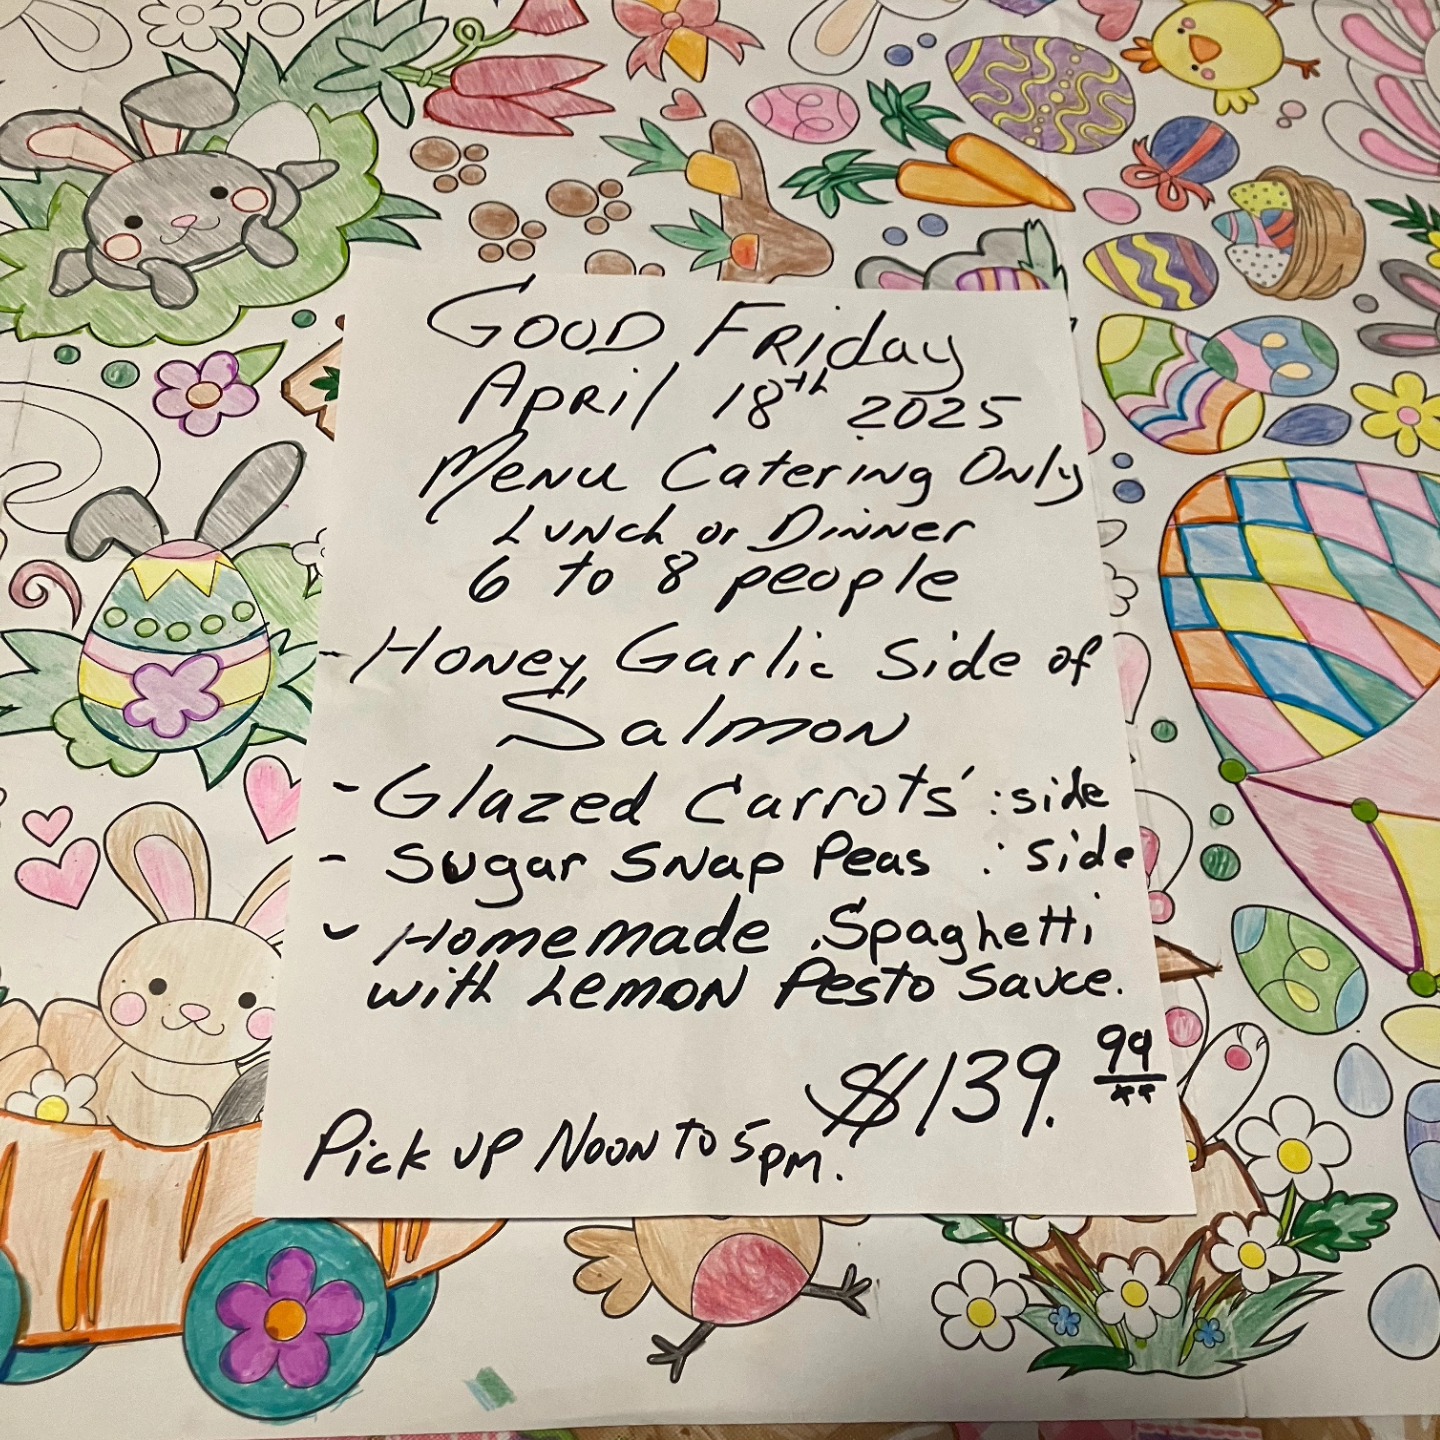 Good Friday
April 18th 2025
Menu Catering Only
Lunch or Dinner
6 to 8 people
- Honey, Garlic Side of
Salmon
- Glazed Carrots' : side
- Sugar Snap Peas : side
- Homemade Spaghetti
with Lemon Pesto Sauce.
$139.99
**
Pick up Noon to 5pm.